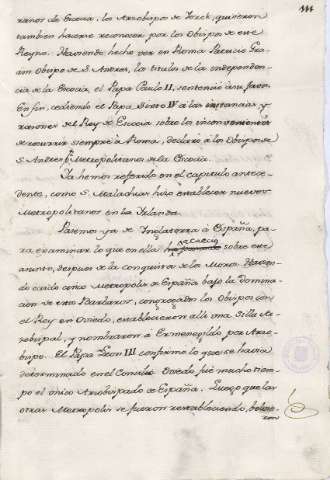 ranos de Escocia, los Arzobispos de Yorck, quisieron
tambien hacerse reconocer por los Obispos de este
Reyno. Haviendo hecho ver en Roma Patricio Gra-
am Obispo de S. Andres, los titulos de la independen-
cia de la Escocia, el Papa Paulo II, sentenció à su favor.
En fin, cediendo el Papa Sixto IV à las instancias, y
razones del Rey de Escocia sobre los inconvenientes
de recurrir siempre à Roma, declaró à los Obispos de
S. Andres p.r Metropolitanos de la Escocia.
Ya hemos referido en el capitulo antece-
dente, como S. Malachias hizo establecer nuevos
Metropolitanos en la Irlanda.
Pasemos ya de Inglaterra à España, pa-
ra examinar lo que en ella se creció sobre este
asunto, despues de la conquista de los Moros. Havien-
do caido cinco Metropolis de España bajo la Domina-
cion de estos Barbaros, congregados los Obispos con
el Rey en Oviedo, establecieron alli una Silla Me-
tropol, y nombraron à Ermenegildo por Arzo-
bispo. El Papa Leon III confirmó lo que se havia
determinado en el Concilio. Oviedo fué mucho tiem-
po el único Arzobispado de España. Luego que las
otras Metropolis se fueron restableciendo, bolvie-
ron